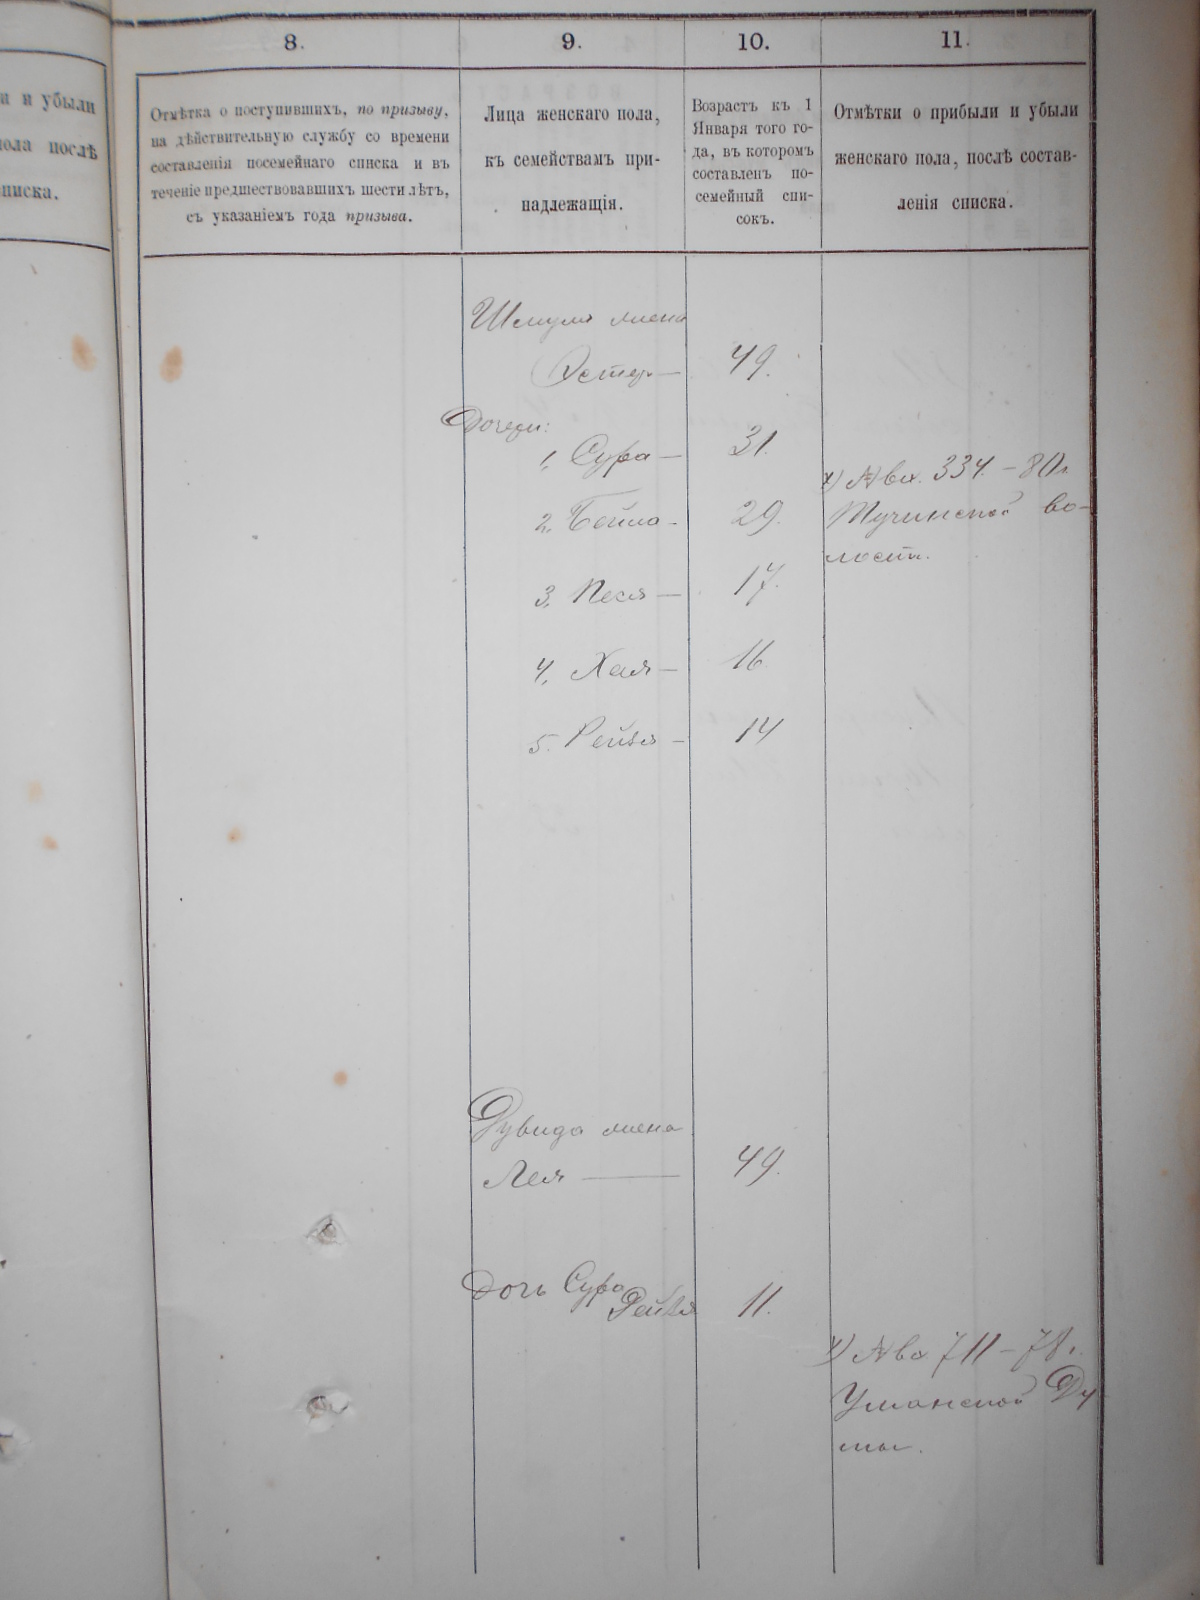 и и убыли
пола послѣ
писка.
8.
9.
10.
11.
Отмѣтка о поступившихъ, по призыву,
на дѣйствительную службу со времени
составленія посемейнаго списка и въ
теченіе предшествовавшихъ шести лѣтъ,
съ указаніемъ года призыва.
Лица женскаго пола,
къ семействамъ при-
надлежащія.
Возрастъ къ 1
Января того го-
да, въ которомъ
составленъ по-
семейный спи-
сокъ.
Отмѣтки о прибыли и убыли
женскаго пола, послѣ состав-
ленія списка.
Шмуля жена
Эстер— 49.
Дочери:
1. Сура— 31.
2. Бейла- 29.
3. Песя— 17.
4. Хая— 16
5. Рейзя- 14
х) № вх. 334. - 80 г.
Тучинской во-
лости.
Дувида жена
Лея — 49.
Дочь Сура
Рейзя 11.
х) № вх 711 - 78 г.
Уманской Ду
мы.